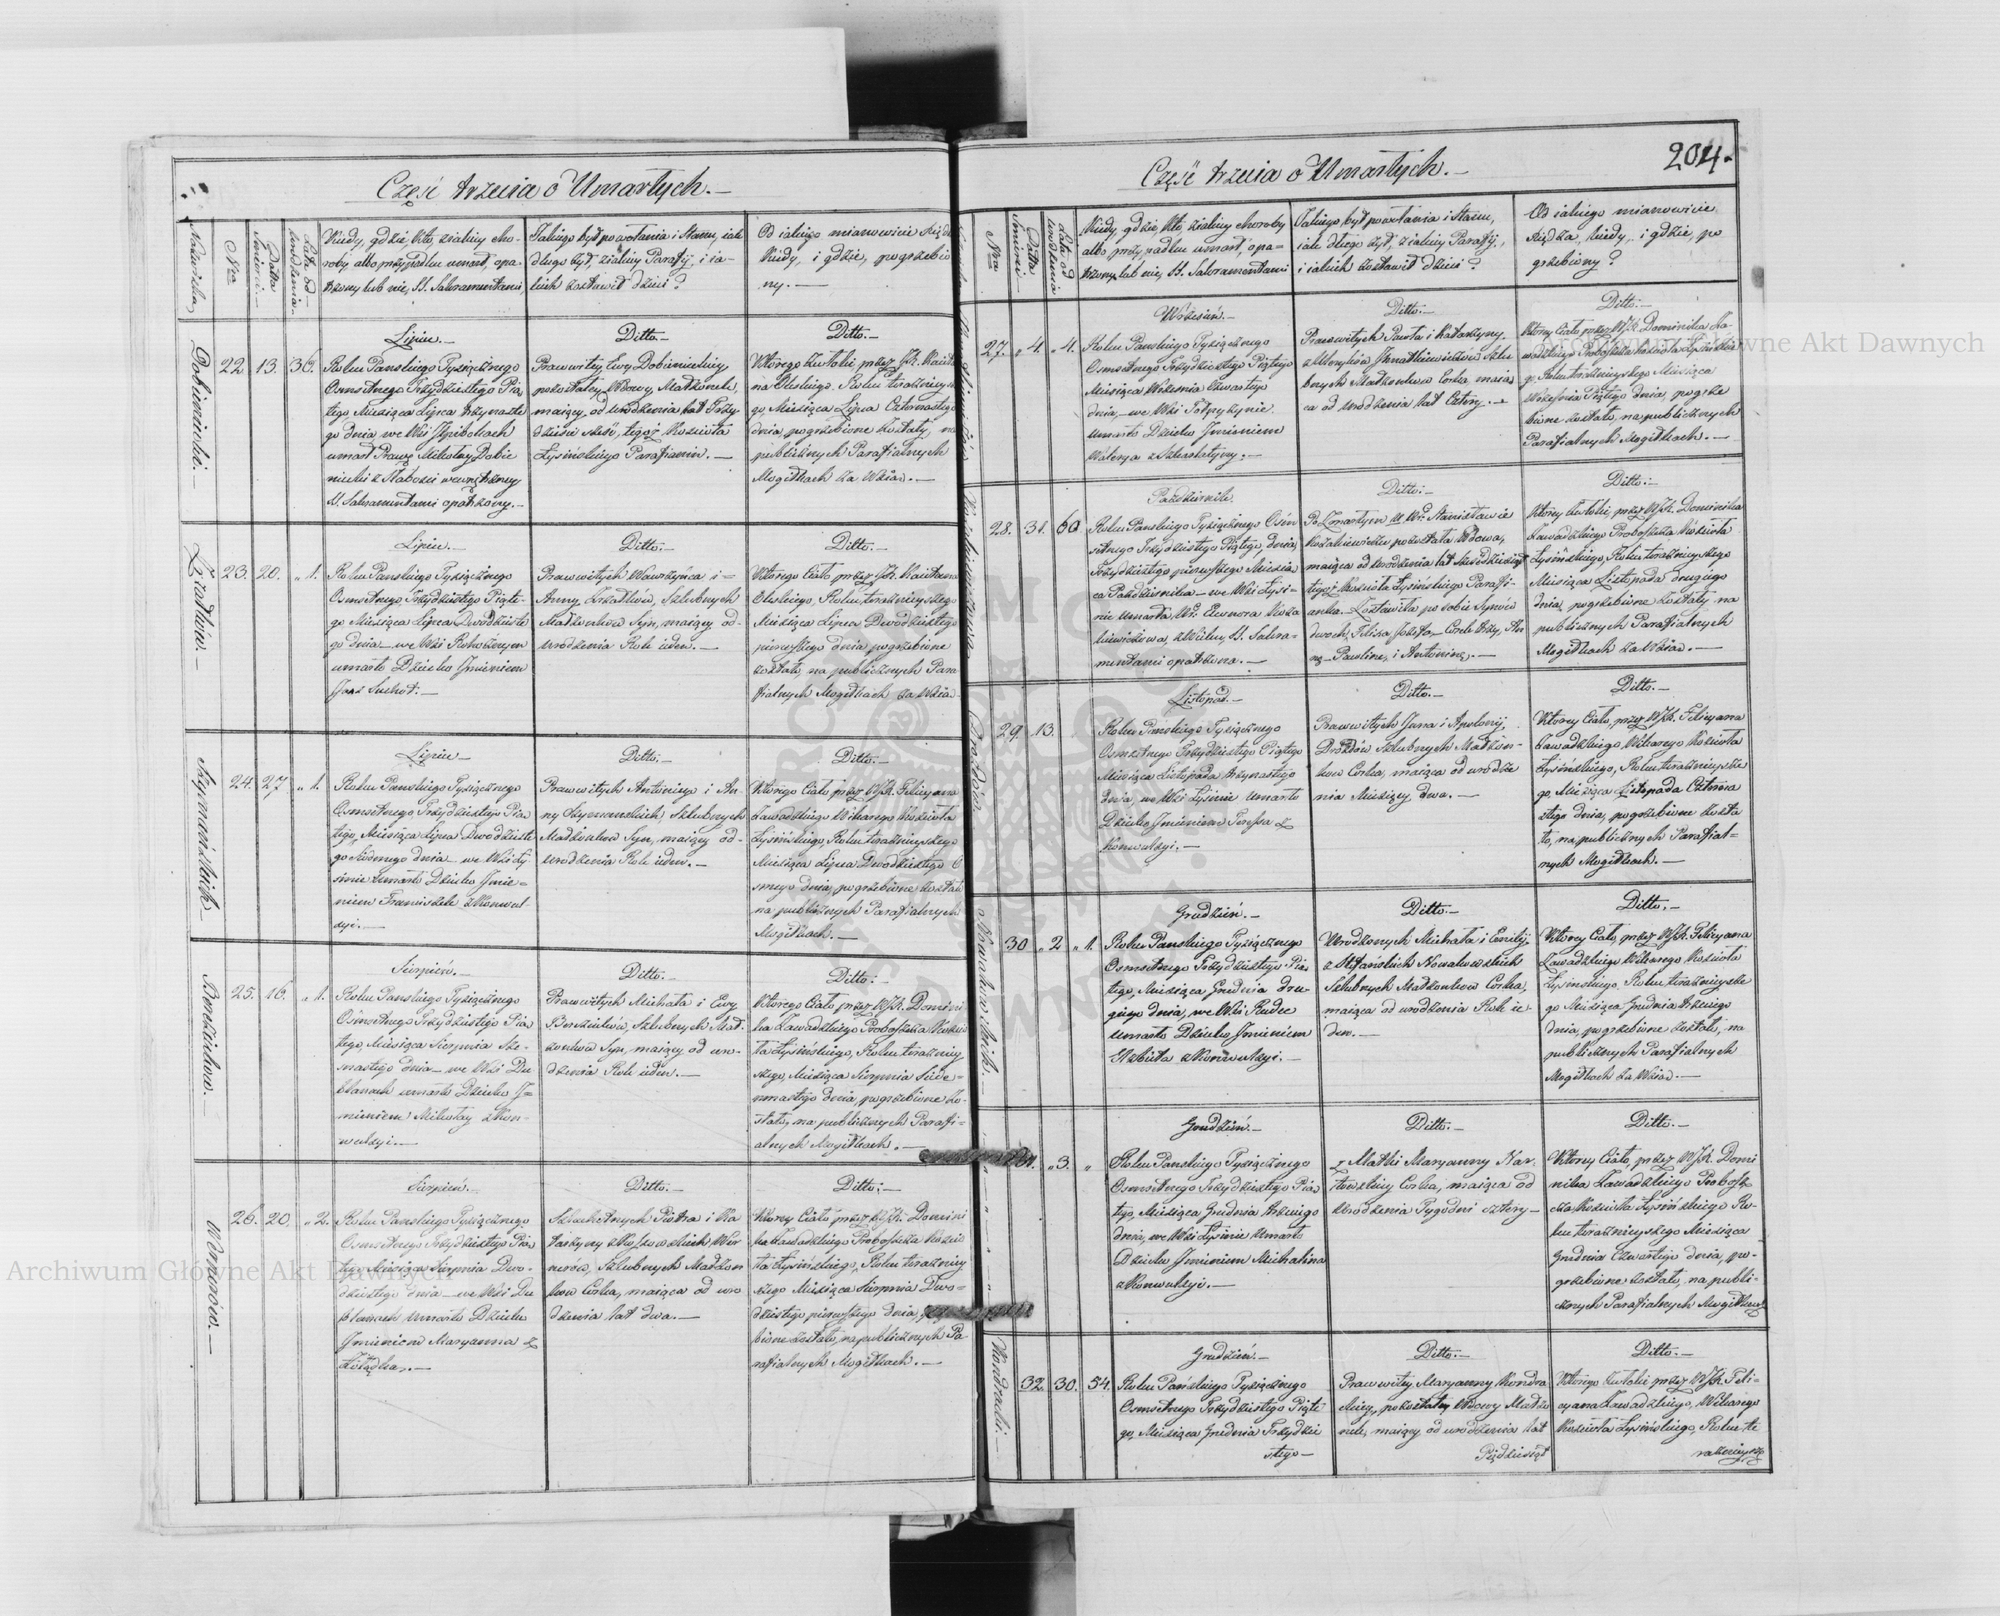 Część trzecia o Umarłych.—
Nazwiska
Nro
Datta Śmierci.—
Lata od urodzenia.—
Kiedy, gdzie, kto, z iakiey cho-
roby albo przypadku umarł, opa-
trzony lub nie, SS. Sakramentami,
Jakiego był powołania i stanu, iak
długo żył z iakiey Parafij, i ia-
kich zostawił dzieci?
Od iakiego mianowicie Xiędza
Kiedy, i gdzie, pogrzebio
ny.—
Dobieniecki.—
22
13.
36.
Lipiec.—
Roku Pańskiego Tysiącznego
Osmsetnego Trzydziestego Pią-
tego Miesiąca Lipca trzynaste
go dnia we Wsi
umarł Mikołay Dobie
niecki z słabości wewnętrzney
SS. Sakramentami opatrzony.—
Ditto.—
Prawowitey Ewy Dobienieckiey
pozostałey Wdowy Małżonek,
maiący od urodzenia lat Trzy-
dzieści sześć, tegoż Kościoła
Łysińskiego Parafianin.—
Ditto.—
Którego zwłoki przez JX. Kaieta
na Roku teraźnieysze
go, Miesiąca Lipca Czternastego
dnia, pogrzebione zostały, na
publicznych Parafialnych
Mogiłkach za Wsią.—
23.
20.
„1.
Lipiec.—
Roku Pańskiego Tysiącznego
Osmsetnego, Trzydziestego Piąte-
go Miesiąca Lipca Dwudzieste
go dnia we Wsi Rokoszynem
umarło Dziecko Imieniem
Jan z Suchot.—
Ditto.—
Prawowitych Wawrzyńca i=
Anny, Szlubnych
Małżonków Syn, maiący od-
urodzenia Rok ieden.—
Ditto.—
Którego Ciało przez JX. Kaietana
Roku teraźnieyszego
Miesiąca Lipca Dwudziestego
pierwszego dnia, pogrzebione
zostało, na publicznych Para
fialnych Mogiłkach za Wsią.—
Szymańskich.—
24.
27
„1.
Lipiec.—
Roku Pańskiego Tysiącznego
Osmsetnego, Trzydziestego Pią-
tego, Miesiąca Lipca Dwudzieste
go siódmego dnia we Wsi Ły
sinie umarło Dziecko Imie=
niem Franciszek z Konwul
syi.—
Ditto.—
Prawowitych Antoniego i An-
ny Szymańskich, Szlubnych
Małżonków Syn, maiący od-
urodzenia Rok ieden.—
Ditto.—
Którego Ciało przez WJX. Felicyana
Zawadzkiego Wikarego Kościoła
Łysińskiego, Roku teraźnieyszego
Miesiąca Lipca Dwudziestego O
smego dnia, pogrzebione zostało
na publicznych Parafialnych
Mogiłkach.—
25.
16.
„1.
Sierpień.—
Roku Pańskiego Tysiącznego
Osmsetnego Trzydziestego Pią-
tego, Miesiąca Sierpnia Sze-
snastego dnia we Wsi Du
blanach umarło Dziecko I=
mieniem Mikołay z Kon-
wulsyi.—
Ditto.—
Prawowitych Michała i Ewy
Szlubnych Mał-
żonków Syn, maiący od uro-
dzenia Rok ieden.—
Ditto:—
Którego Ciało przez WJX. Domini
ka Zawadzkiego Proboszcza Kościo
ła Łysińskiego, Roku teraźniey
szego, Miesiąca Sierpnia Siede=
mnastego dnia, pogrzebione zo-
stało, na publicznych Parafi=
alnych Mogiłkach.—
26.
20.
„2.
Sierpień.—
Roku Pańskiego Tysiącznego
Osmsetnego Trzydziestego Pią-
tego Miesiąca Sierpnia Dwu-
dziestego dnia we Wsi Du
blanach umarło Dziecko
Imieniem Maryanna z
Żołądka.—
Ditto.—
Szlachetnych Piotra i Ka
tarzyny
Szlubnych Małżon
ków Córka, maiąca od uro
dzenia lat dwa.—
Ditto:—
Którey Ciało przez WJX. Domini
ka Zawadzkiego Proboszcza Kościo
ła Łysińskiego, Roku teraźniey
szego Miesiąca Sierpnia Dwu-
dziestego pierwszego dnia, pogrze
bione zostało, na publicznych Pa
rafialnych Mogiłkach.—
Część trzecia o Umarłych.—
204.
Nro
Datta Śmierci
Lata od urodzenia
Kiedy, gdzie, kto, z iakiey choroby
albo przypadku umarł, opa-
trzony lub nie, SS. Sakramentami
Jakiego był powołania i stanu,
iak długo żył, z iakiey Parafij,
i iakich zostawił dzieci?
Od iakiego mianowicie
Xiędza, kiedy, i gdzie, po
grzebiony?
27.
„4.
„4.
Wrzesień.—
Roku Pańskiego Tysiącznego
Osmsetnego Trzydziestego Piątego
Miesiąca Września Czwartego
dnia, we Wsi
umarło Dziecko Imieniem
Walerya z Szkarlatyny.—
Ditto:—
Prawowitych Pawła i Katarzyny
Szlu
bnych Małżonków Córka, maią
ca od urodzenia lat Cztery.—
Ditto:—
Którey Ciało przez WJX. Dominika Za
wadzkiego Proboszcza Kościoła Łysińskie
go, Roku teraźnieyszego Miesiąca
Września Piątego dnia, pogrze
bione zostało, na publicznych
Parafialnych Mogiłkach.—
28.
31.
60
Październik.
Roku Pańskiego Tysiącznego Osm
setnego Trzydziestego Piątego, dnia
Trzydziestego pierwszego Miesią
ca Października we Wsi Łysi-
nie umarła, W. Eleonora Koza
kiewiczowa, SS. Sakra-
mentami opatrzona.—
Ditto:—
Po Zmarłym Stanisławie
Kozakiewiczu pozostała Wdowa,
maiąca od urodzenia lat sześćdziesiąt
tegoż Kościoła Łysińskiego Parafi-
anka. Zostawiła po sobie Synów
dwóch, Felixa, Józefa, Córek trzy, An
nę Paulinę, i Antoninę.—
Ditto:—
Którey zwłoki, przez WJX. Dominika
Zawadzkiego Proboszcza Kościoła
Łysińskiego, Roku teraźnieyszego
Miesiąca Listopada drugiego
dnia, pogrzebione zostały na
publicznych Parafialnych
Mogiłkach za Wsią.—
29.
13.
Listopad.—
Roku Pańskiego Tysiącznego
Osmsetnego Trzydziestego Piątego
Miesiąca Listopada trzynastego
dnia, we Wsi Łysinie umarło
Dziecko Imieniem Teressa z
Konwulsyi.—
Ditto.—
Prawowitych Jana i Apolonij
Drozdów Szlubnych Małżon-
ków Córka, maiąca od urodze
nia Miesięcy dwa.—
Ditto.—
Którey Ciało, przez WJX. Felicyana
Zawadzkiego, Wikarego Kościoła
Łysińskiego, Roku teraźnieysze
go, Miesiąca Listopada Czterna
stego dnia, pogrzebione zosta
ło, na publicznych Parafial=
nych Mogiłkach.—
Nowakowskich.—
30
„2
„1.
Grudzień.—
Roku Pańskiego Tysiącznego
Osmsetnego Trzydziestego Pią-
tego, Miesiąca Grudnia dru-
giego dnia, we Wsi Rudce
umarło Dziecko Imieniem
Elżbieta z Konwulsyi.—
Ditto.—
Urodzonych Michała i Emilij
z Stefańskich Nowakowskich
Szlubnych Małżonków Córka,
maiąca od urodzenia Rok ie-
den.—
Ditto.—
Którey Ciało, przez WJX. Felicyana
Zawadzkiego Wikarego Kościoła
Łysińskiego, Roku teraźnieysze
go Miesiąca Grudnia trzeciego
dnia, pogrzebione zostało, na
publicznych Parafialnych
Mogiłkach za Wsią.—
31.
„3.
„
Grudzień.—
Roku Pańskiego Tysiącznego
Osmsetnego Trzydziestego Pią-
tego, Miesiąca Grudnia trzeciego
dnia, we Wsi Łysinie umarło
Dziecko Imieniem Michalina
z Konwulsyi.—
Ditto.—
z Matki Maryanny
Córka, maiąca od
urodzenia Tygodni cztery—
Ditto.—
Którey Ciało, przez WJX. Domi
nika Zawadzkiego Probosz
cza Kościoła Łysińskiego Ro-
ku teraźnieyszego Miesiąca
Grudnia Czwartego dnia, po-
grzebione zostało, na publi-
cznych Parafialnych Mogiłkach
Kondracki—
32.
30.
54.
Grudzień.—
Roku Pańskiego Tysiącznego
Osmsetnego Trzydziestego Piąte
go, Miesiąca Grudnia Trzydzie
stego—
Ditto.—
Prawowitey Maryanny Kondra
ckiey, pozostałey Wdowy Małżo
nek, maiący od urodzenia lat
Pięćdziesiąt
Ditto.—
Którego zwłoki przez WJX. Feli=
cyana Zawadzkiego, Wikarego
Kościoła Łysińskiego, Roku te
raźnieysze
Archiwum Główne Akt Dawnych
Archiwum Główne Akt Dawnych